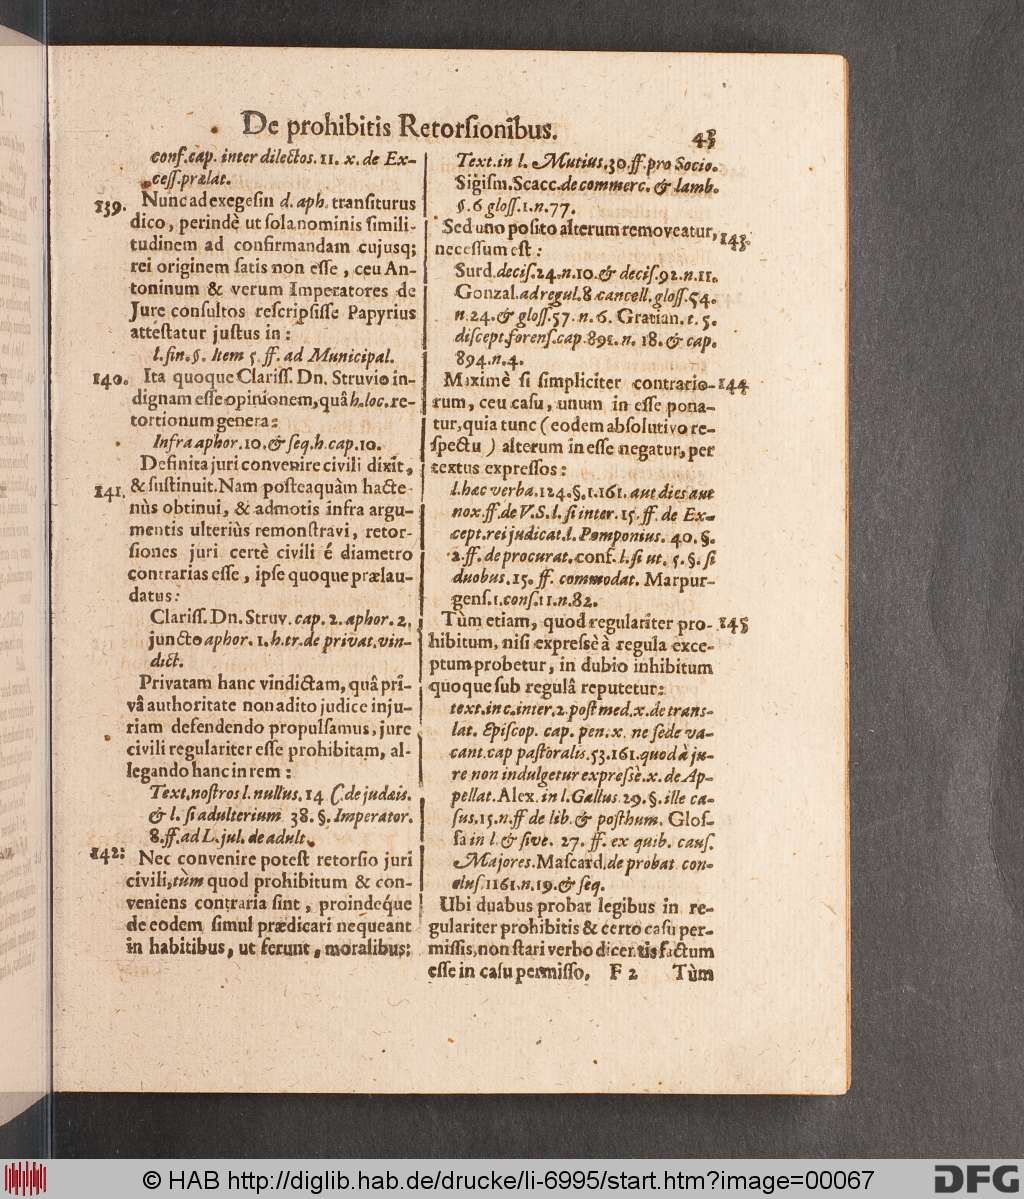 De prohibitis Retorsionibus. 43
conf.cap. inter dilectos.11. x. de Ex-
cess.prælat.
139. Nunc ad exegesin d. aph. transiturus
dico, perindè ut sola nominis simili-
tudinem ad confirmandam cujusq;
rei originem satis non esse, ceu An-
toninum & verum Imperatores de
Jure consultos rescripsisse Papyrius
attestatur justus in:
l.fin.§. Item 5 ff. ad Municipal.
140. Ita quoque Clariss. Dn. Struvio in-
dignam esse opinionem, quâ h.loc.re-
tortionum genera:
Infra aphor.10.& seq.h cap.10.
Definita juri convenire civili dixit,
141. & sustinuit. Nam posteaquàm hacte-
nùs obtinui, & admotis infra argu-
mentis ulteriùs remonstravi, retor-
siones juri certè civili é diametro
contrarias esse, ipse quoque prælau-
datus:
Clariss. Dn. Struv. cap. 2. aphor. 2.
juncto aphor. 1.h.tr.de privat.vin-
dict.
Privatam hanc vindictam, quâ prî-
vâ authoritate non adito judice inju-
riam defendendo propulsamus, jure
civili regulariter esse prohibitam, al-
legando hanc in rem:
Text.nostros l.nullus.14 C.de judæis.
& l. si adulterium 38. §. Imperator.
8.ff.ad L.jul. de adult.
142: Nec convenire potest retorsio juri
civili, tùm quod prohibitum & con-
veniens contraria sint, proindeque
de eodem simul prædicari nequeant
in habitibus, ut ferunt, moralibus:
Text.in l. Mutius.30.ff.pro Socio.
Sigism. Scacc.de commerc. & lamb.
§.6 gloss.1.n.77.
Sed uno posito alterum removeatur, 143.
necessum est:
Surd.decis.24.n.10.& decis.92.n.11.
Gonzal.ad regul.8 cancell.gloss.54.
n.24.& gloss.57.n.6. Gratian.t.5.
discept.forens.cap.891.n. 18.& cap.
894.n.4.
Maximè si simpliciter contrario- 144
rum, ceu casu, unum in esse pona-
tur, quia tunc (eodem absolutivo re-
spectu) alterum in esse negatur, per
textus expressos:
l.hæc verba.124.§.1.161. aut dies aut
nox.ff.de V.S.l. si inter.15.ff.de Ex-
cept.rei judicat.l. Pomponius. 40.§.
2.ff.de procurat.conf.l.si ut. 5.§. si
duobus.15.ff. commodat. Marpur-
gens.1.cons.11.n.82.
Tùm etiam, quod regulariter pro- 145
hibitum, nisi expressè à regula exce-
ptum probetur, in dubio inhibitum
quoque sub regulâ reputetur:
text.in c.inter.2.post med.x.de trans-
lat. Episcop. cap. pen.x. ne sede va-
cant.cap pastoralis.53.161.quod à ju-
re non indulgetur expressè.x. de Ap-
pellat.Alex.in l.Gallus.29.§.ille ca-
sus.15.n.ff de lib.& posthum. Glos-
sa in l.& sive. 27. ff. ex quib. caus.
Majores.Mascard.de probat. con-
clus.1161.n.19.& seq.
Ubi duabus probat legibus in re-
gulariter prohibitis & certo casu per-
missis, non stari verbo dicentis factum
esse in casu permisso. F 2 Tùm
© HAB http://diglib.hab.de/drucke/li-6995/start.htm?image=00067
DFG